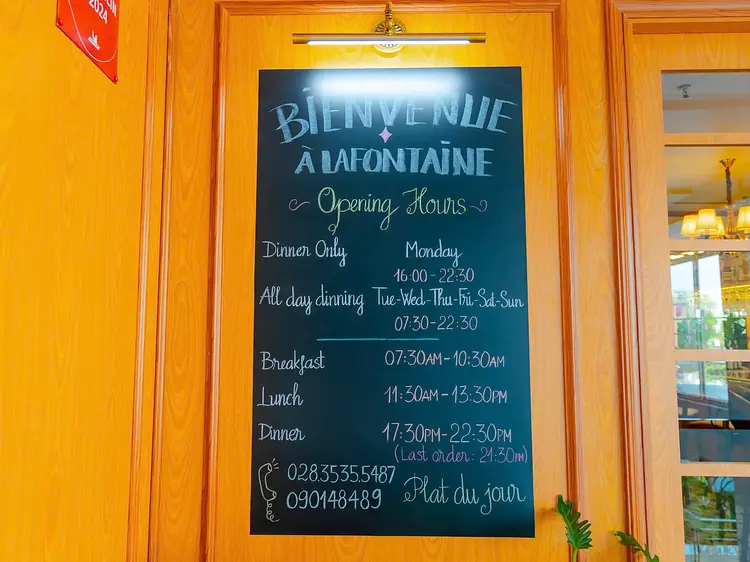 2024
BIENVENUE
À LAFONTAINE
Opening Hours
Dinner Only Monday
16:00-22:30
All day dinning Tue-Wed-Thu-Fri-Sat-Sun
07:30-22:30
Breakfast 07:30AM-10:30AM
Lunch 11:30AM-13:30PM
Dinner 17:30PM-22:30PM
(Last order: 21:30PM)
028.3535.5487
090148489 Plat du jour